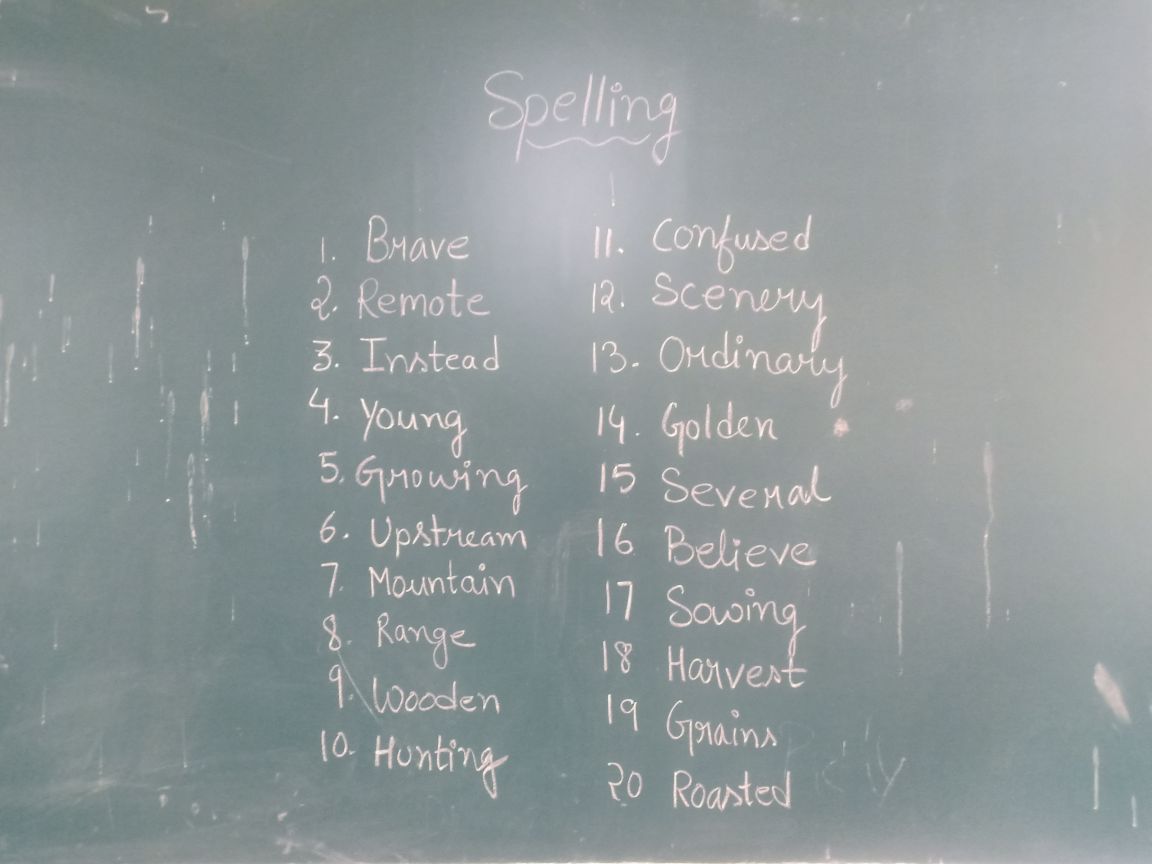 Spelling
1. Brave
2. Remote
3. Instead
4. Young
5. Growing
6. Upstream
7. Mountain
8. Range
9. Wooden
10. Hunting
11. Confused
12. Scenery
13. Ordinary
14. Golden
15 Several
16 Believe
17 Sowing
18 Harvest
19 Grains
20 Roasted